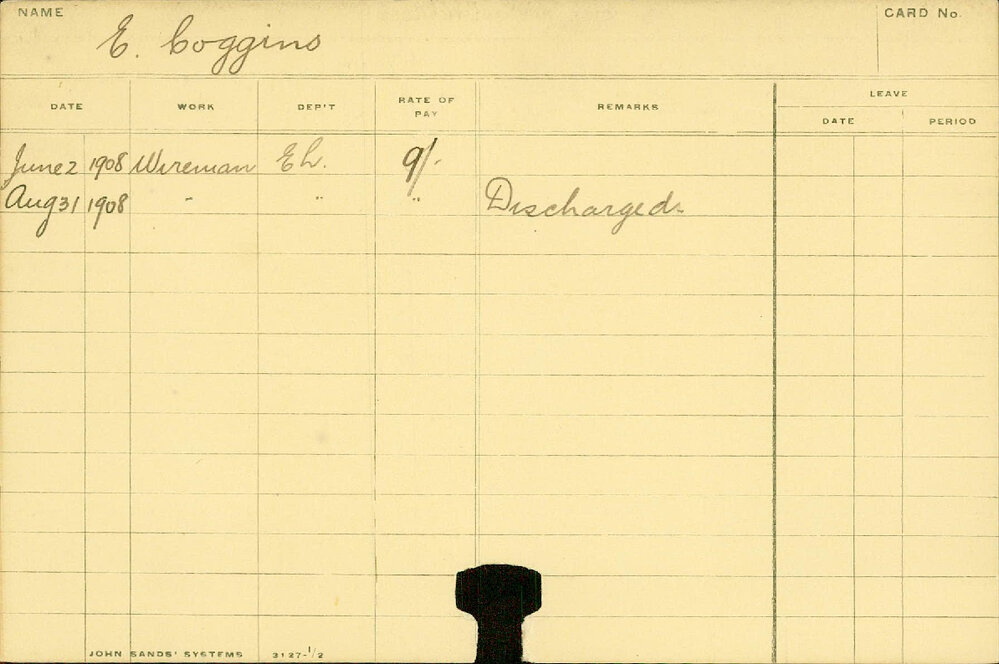 NAME E. Coggins CARD No.
DATE WORK DEP'T RATE OF PAY REMARKS LEAVE
DATE PERIOD
June 2 1908 Wireman EL. 9/-
Aug 31 1908 " " " Discharged.
JOHN SANDS' SYSTEMS 3127-1/2